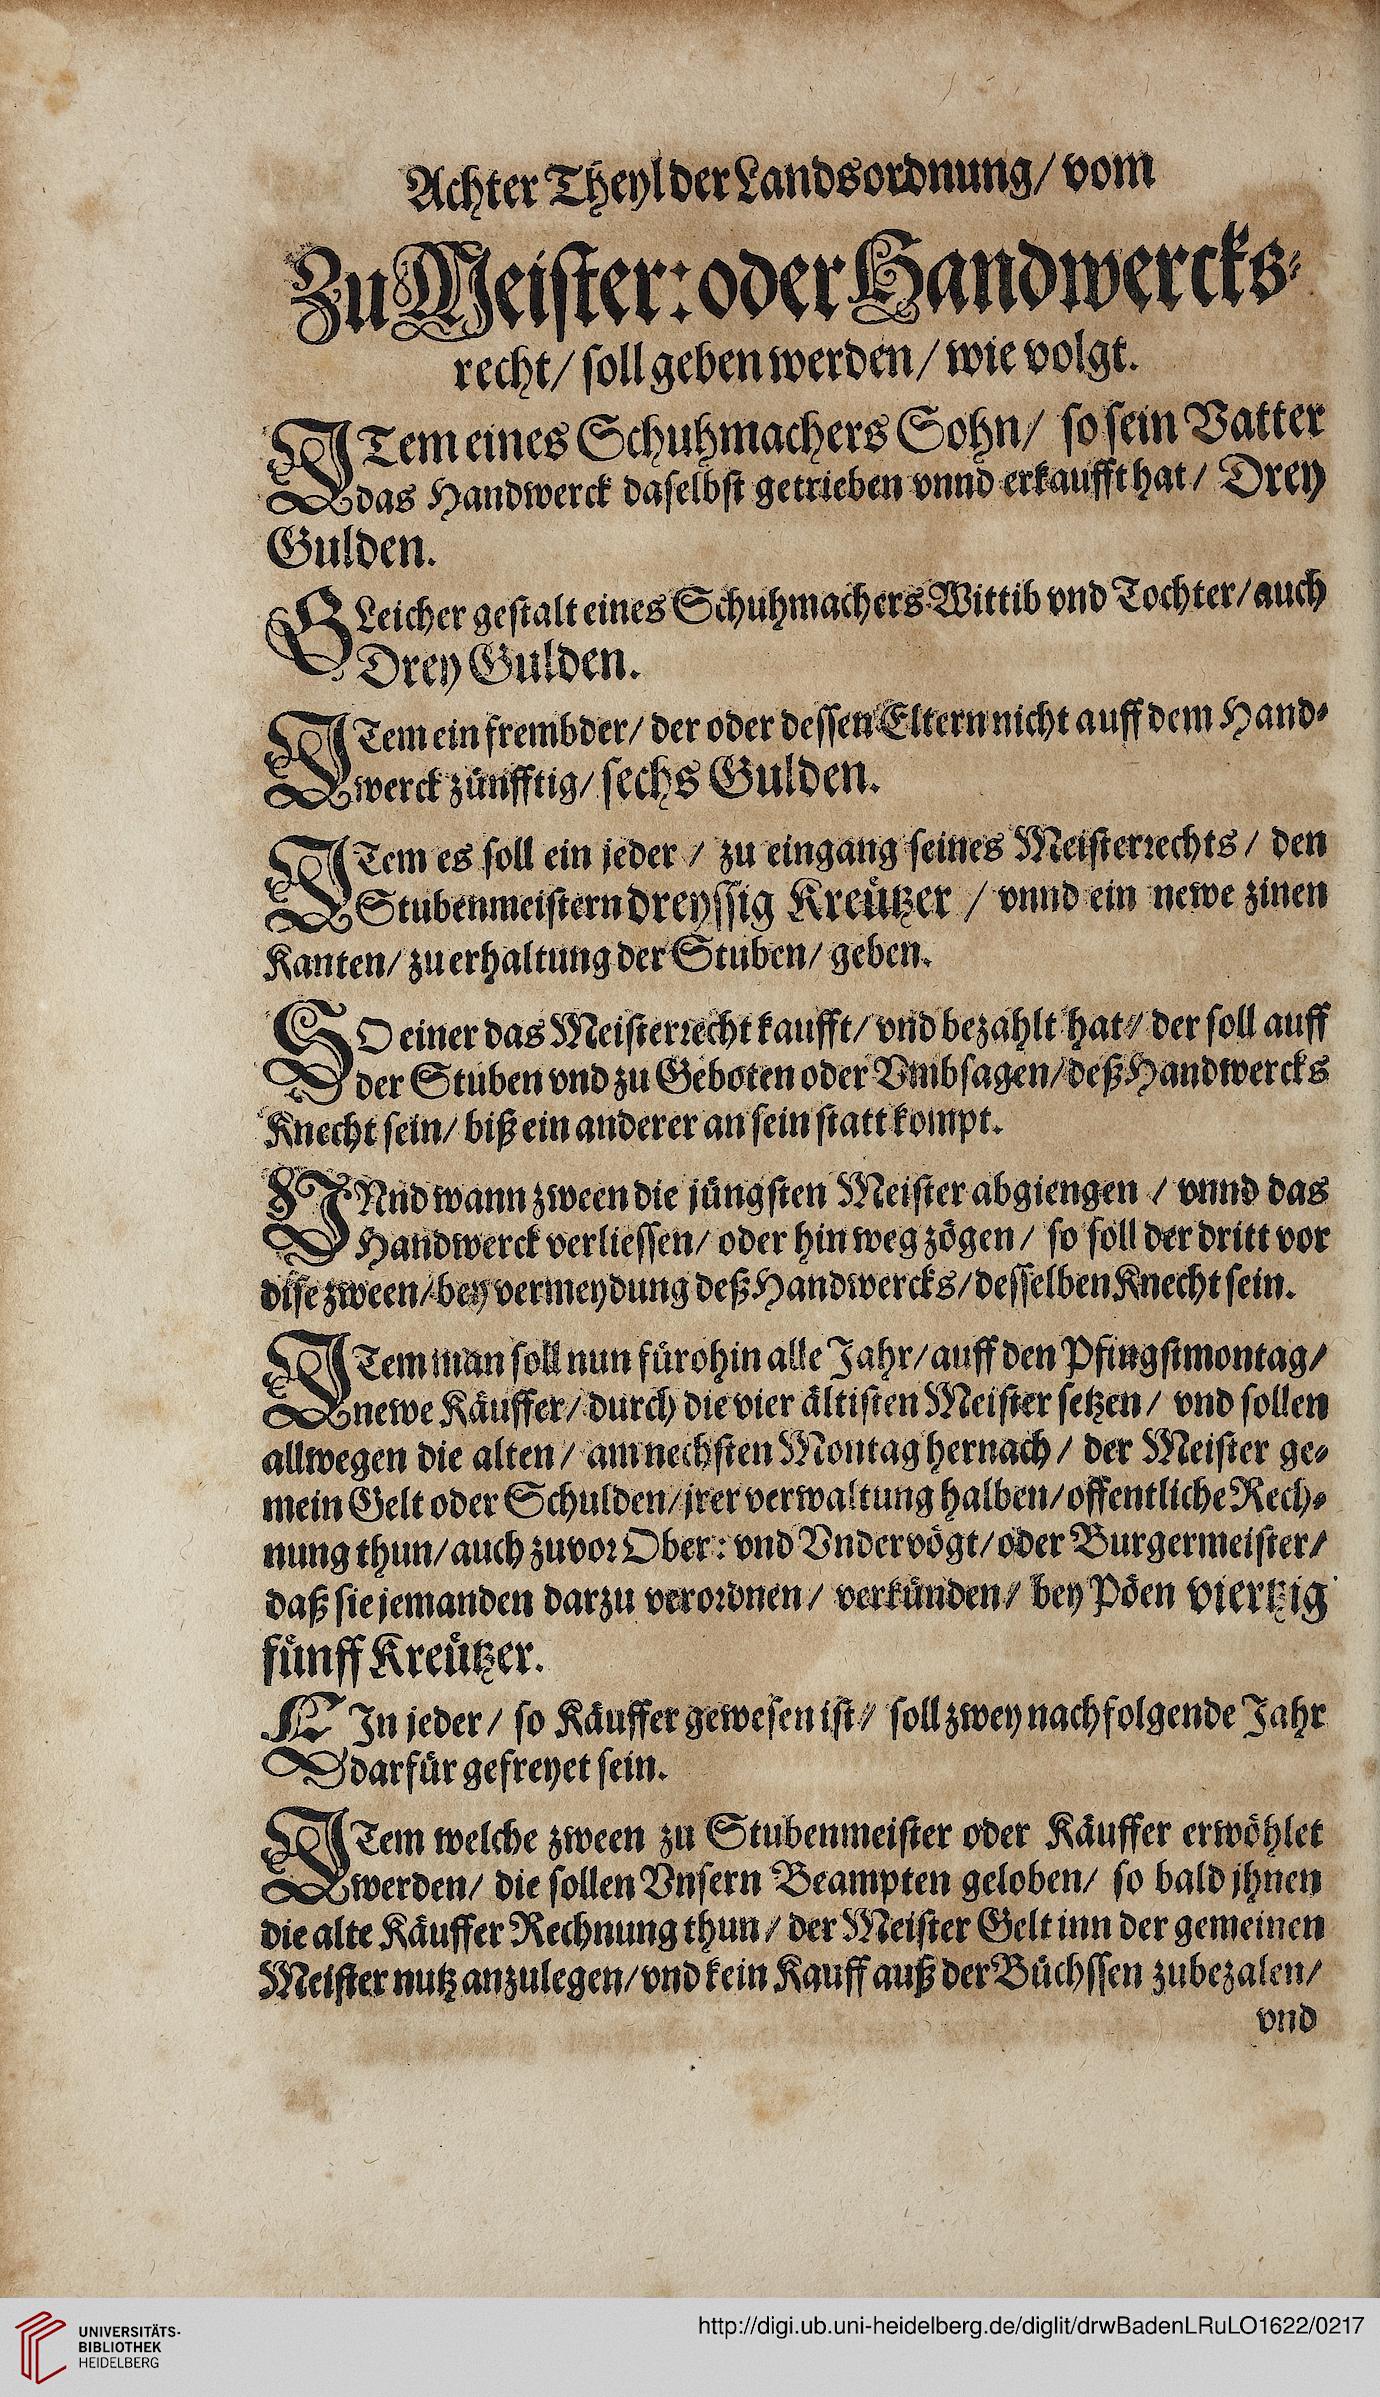 Achter Theyl der Landsordnung/ vom
Zu Meister: oder Handwercks⸗
recht/ soll geben werden/ wie volgt.
ITem eines Schuhmachers Sohn/ so sein Vatter
das Handwerck daselbst getrieben vnnd erkaufft hat/ Drey
Gulden.
GLeicher gestalt eines Schuhmachers Wittib vnd Tochter/ auch
Drey Gulden.
ITem ein frembder/ der oder dessen Eltern nicht auff dem Hand⸗
werck zünfftig/ sechs Gulden.
ITem es soll ein jeder/ zu eingang seines Meisterrechts/ den
Stubenmeistern dreyssig Kreützer/ vnnd ein newe zinen
Kanten/ zu erhaltung der Stuben/ geben.
SO einer das Meisterrecht kaufft/ vnd bezahlt hat/ der soll auff
der Stuben vnd zu Geboten oder Vmbsagen/ deß Handwercks
Knecht sein/ biß ein anderer an sein statt kompt.
VNnd wann zween die jüngsten Meister abgiengen/ vnnd das
Handwerck verliessen/ oder hinweg zögen/ so soll der dritt vor
dise zween/ bey vermeydung deß Handwercks/ desselben Knecht sein.
ITem man soll nun fürohin alle Jahr/ auff den Pfingstmontag/
newe Käuffer/ durch die vier ältisten Meister setzen/ vnd sollen
allwegen die alten/ am nechsten Montag hernach/ der Meister ge⸗
mein Gelt oder Schulden/ jrer verwaltung halben/ offentliche Rech⸗
nung thun/ auch zuvor Ober: vnd Vndervögt/ oder Burgermeister/
daß sie jemanden darzu verordnen/ verkünden/ bey Pöen viertzig
fünff Kreützer.
EIn jeder/ so Käuffer gewesen ist/ soll zwey nachfolgende Jahr
darfür gefreyet sein.
ITem welche zween zu Stubenmeister oder Käuffer erwöhlet
werden/ die sollen Vnsern Beampten geloben/ so bald jhnen
die alte Käuffer Rechnung thun/ der Meister Gelt inn der gemeinen
Meister nutz anzulegen/ vnd kein Kauff auß der Büchssen zubezalen/
vnd
UNIVERSITÄTS-
BIBLIOTHEK
HEIDELBERG
http://digi.ub.uni-heidelberg.de/diglit/drwBadenLRuLO1622/0217